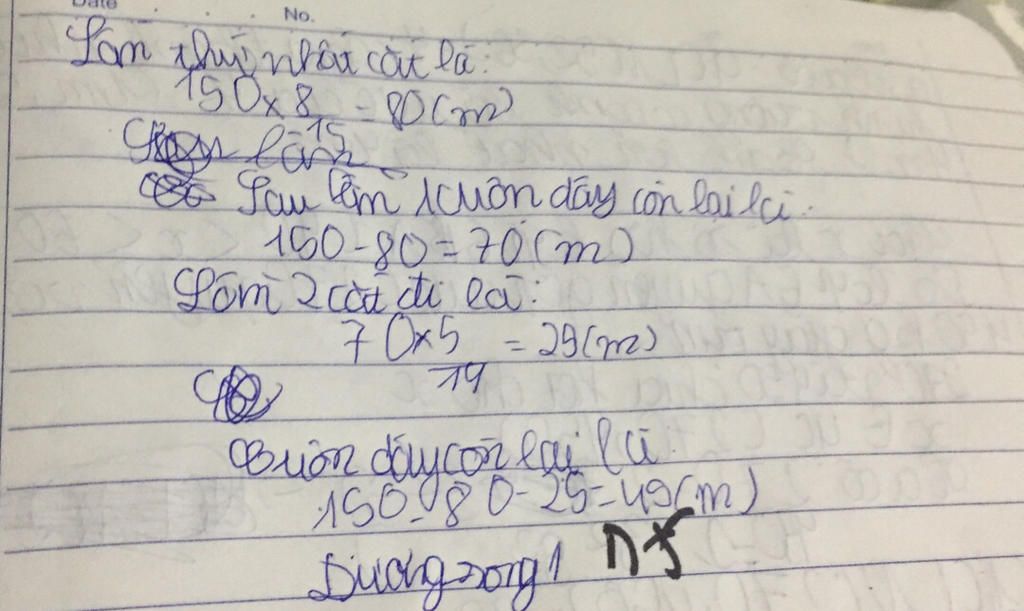 Date No.
Lần thứ nhất cắt là:
150 x 8/15 = 80 (m)
lần
Sau lần 1 cuộn dây còn lại là:
150 - 80 = 70 (m)
Lần 2 cắt đi là:
70 x 5/14 = 25 (m)
Cuộn dây còn lại là
150 - 80 - 25 = 45 (m)